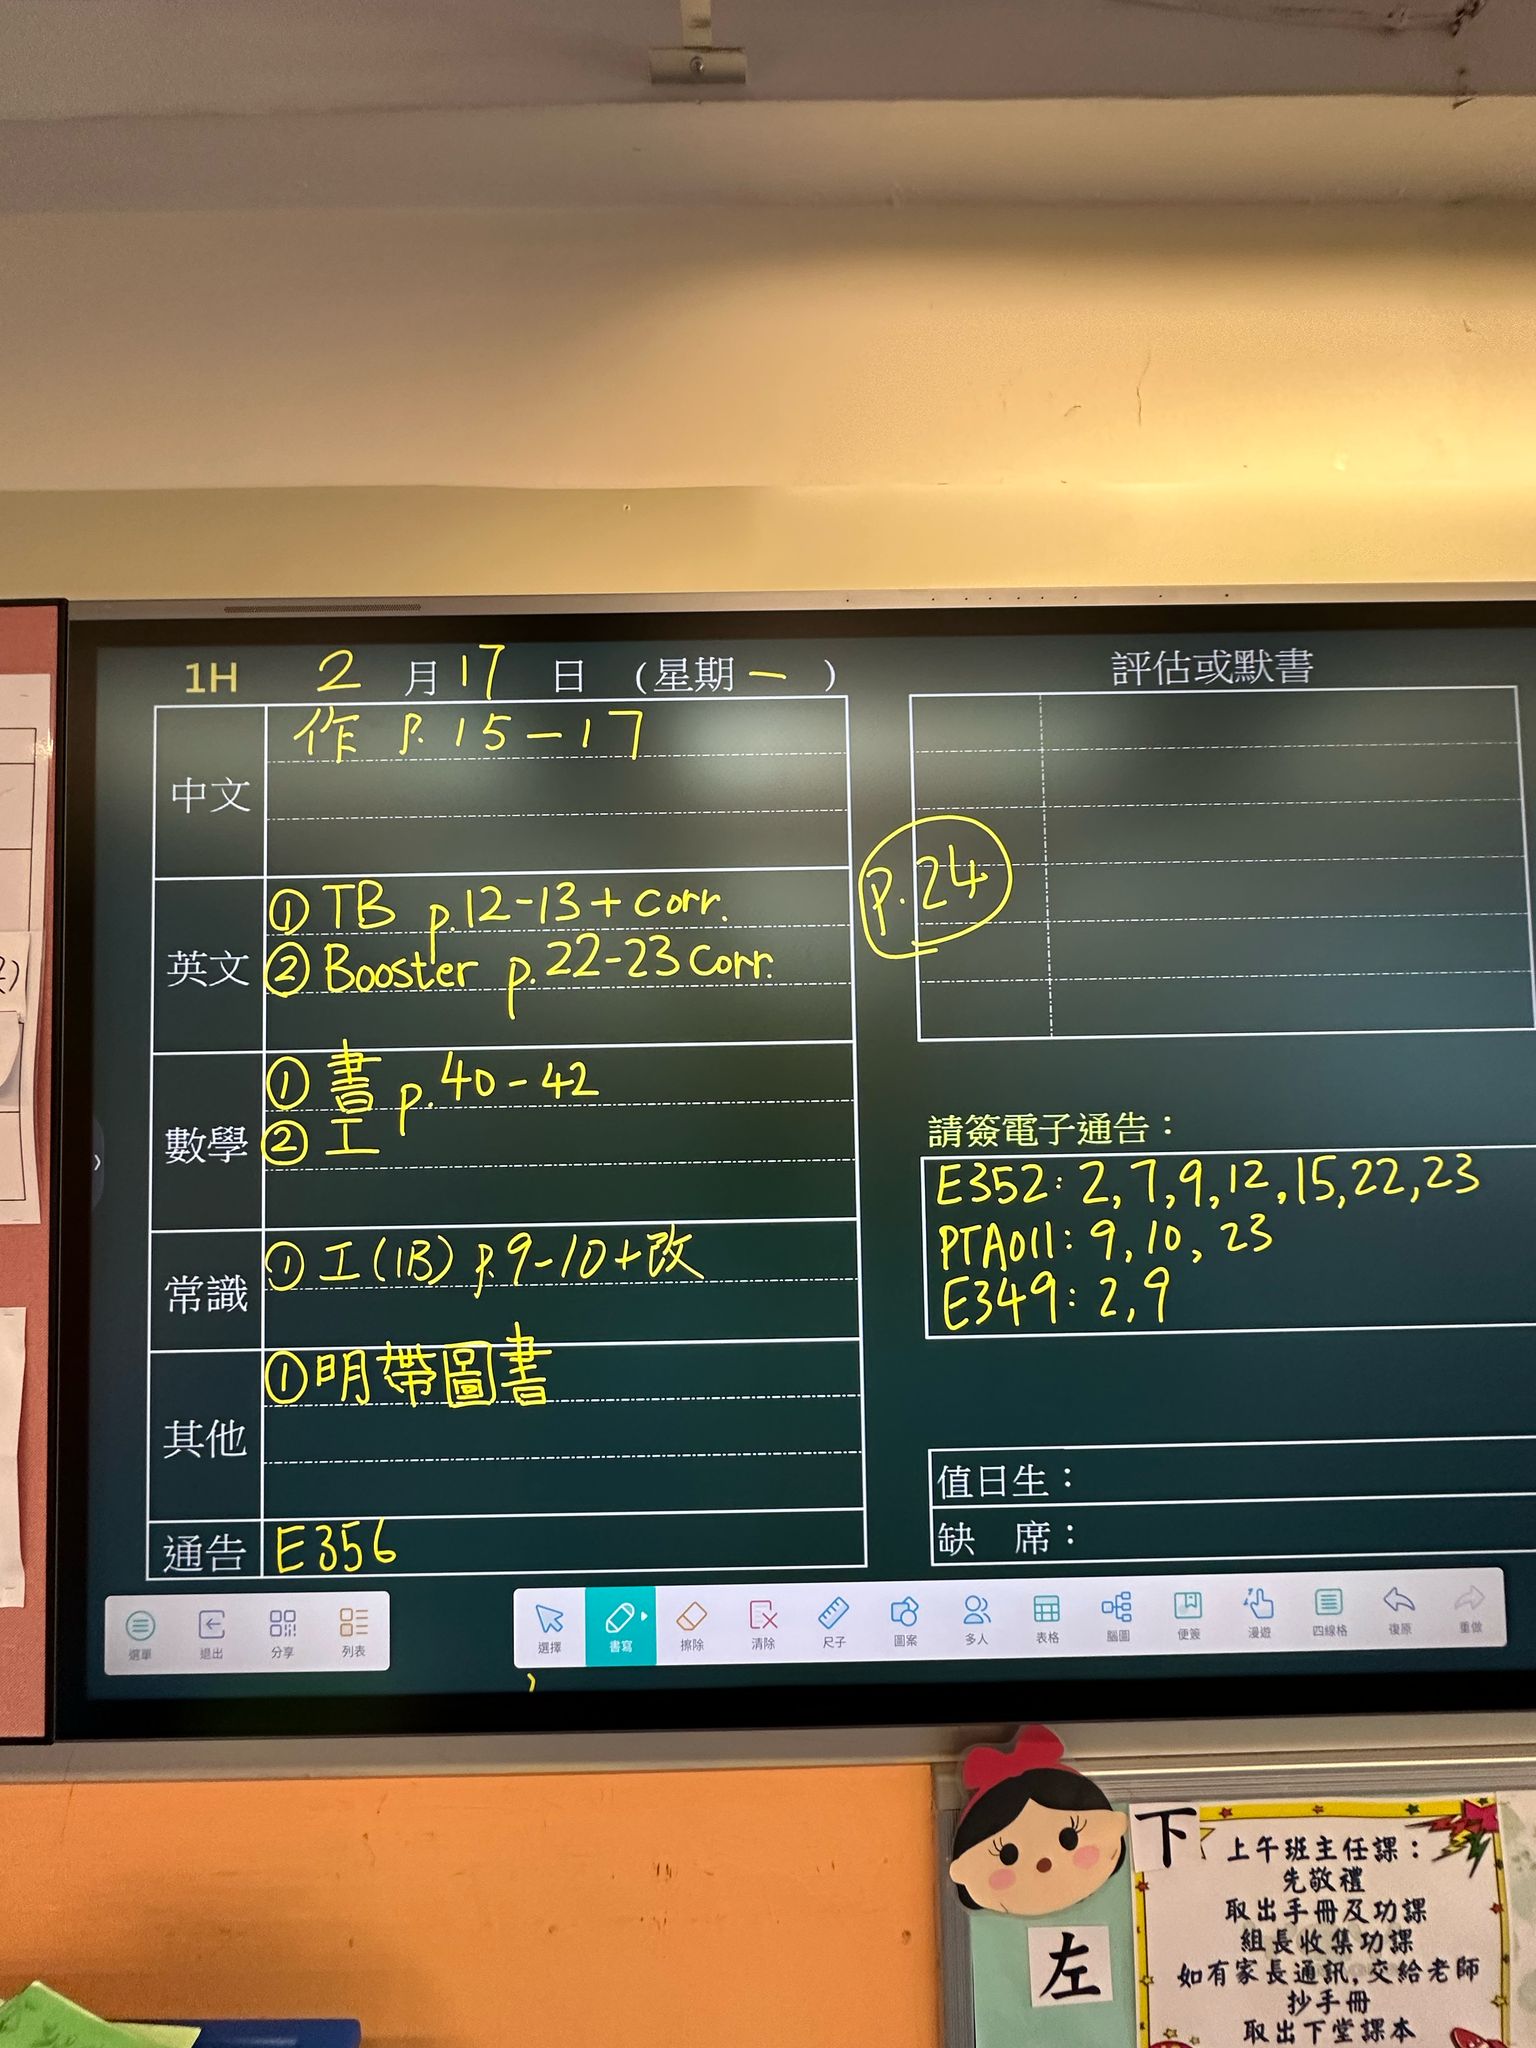 1H 2月17日(星期一)
中文
作 P.15-17
英文
① TB p.12-13 + corr.
② Booster p.22-23 corr.
數學
① 書 p.40-42
② 工
常識
① 工(1B) p.9-10+改
其他
①明帶圖書
通告
E356
評估或默書
P.24
請簽電子通告：
E352: 2, 7, 9, 12, 15, 22, 23
PTA011: 9, 10, 23
E349: 2, 9
值日生：
缺 席：
選單
退出
分享
列表
選擇
書寫
擦除
清除
尺子
圖案
多人
表格
腦圖
便簽
漫遊
四線格
復原
重做
下
左
上午班主任課：
先敬禮
取出手冊及功課
組長收集功課
如有家長通訊,交給老師
抄手冊
取出下堂課本